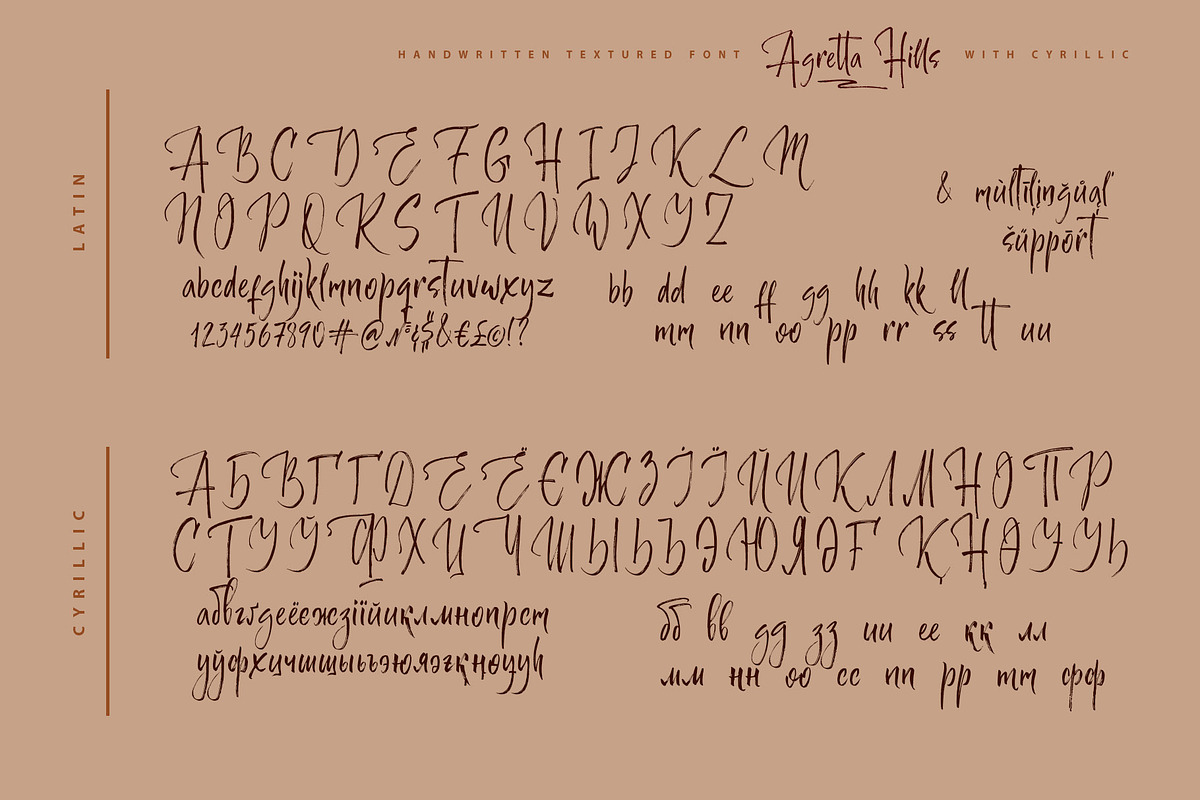 HANDWRITTEN TEXTURED FONT Agretta Hills WITH CYRILLIC
LATIN
A B C D E F G H I J K L M
N O P Q R S T U V W X Y Z
abcdefghijklmnopqrstuvwxyz
1234567890#@№¢$&€£©!?
& mùltīļingŭąl
šűppōŕt
bb dd ee ff gg hh kk ll
mm nn oo pp rr ss tt uu
CYRILLIC
А Б В Г Ґ Д Е Ё Є Ж З І Ї Й И К Л М Н О П Р
С Т У Ў Ф Х Ц Ч Ш Ы Ь Ъ Э Ю Я Ә Ғ Қ Ң Ө Ұ Ү Һ
абвгґдеёєжзіїйиклмнопрст
уўфхцчшщыьъэюяәғқңөұүһ
бб вв дд зз ии ее кк лл
мм нн оо сс пп рр тт фф